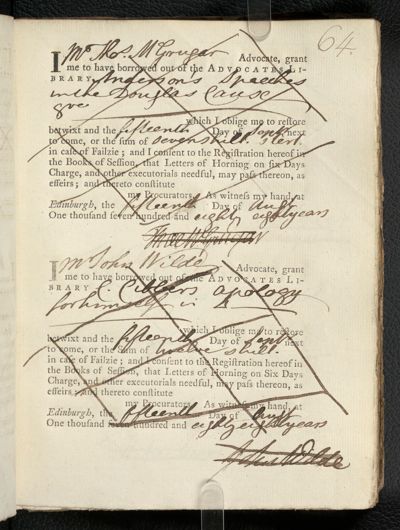 64.
I Mr Thos. McGrugar Advocate, grant
me to have borrowed out of the ADVOCATES LI-
BRARY Anderson's Speeches
in the Douglas Cause
which I oblige me to restore
betwixt and the fifteenth Day of next
to come, or the sum of seven shill. sterl.
in case of Failzie; and I consent to the Registration hereof in
the Books of Session, that Letters of Horning on six Days
Charge, and other executorials needful, may pass thereon, as
effeirs; and thereto constitute
my Procurators. As witness my hand, at
Edinburgh, the fifteenth Day of Augt
One thousand seven hundred and eighty eight years
Thos McGrugar
I Mr John Wilde Advocate, grant
me to have borrowed out of the ADVOCATES LI-
BRARY C. Cibbers apology
for himself
which I oblige me to restore
betwixt and the fifteenth Day of next
to come, or the sum of twelve shill.
in case of Failzie; and I consent to the Registration hereof in
the Books of Session, that Letters of Horning on Six Days
Charge, and other executorials needful, may pass thereon, as
effeirs; and thereto constitute
my Procurators. As witness my hand, at
Edinburgh, the fifteenth Day of Augt
One thousand seven hundred and eighty eight years
John Wilde